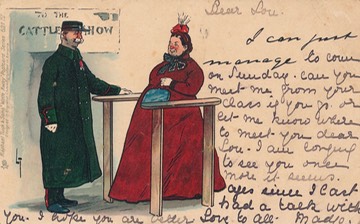 TO THE
CATTLE SHOW
Dear Lou.
I can just
manage to come
on Sunday. can you
meet me, from your
class if you go. or
let me know where
to meet you dear
Lou. I am longing
to see you once
more it seems.
ages since I last
had a talk with
you. I hope you are better Love to all.